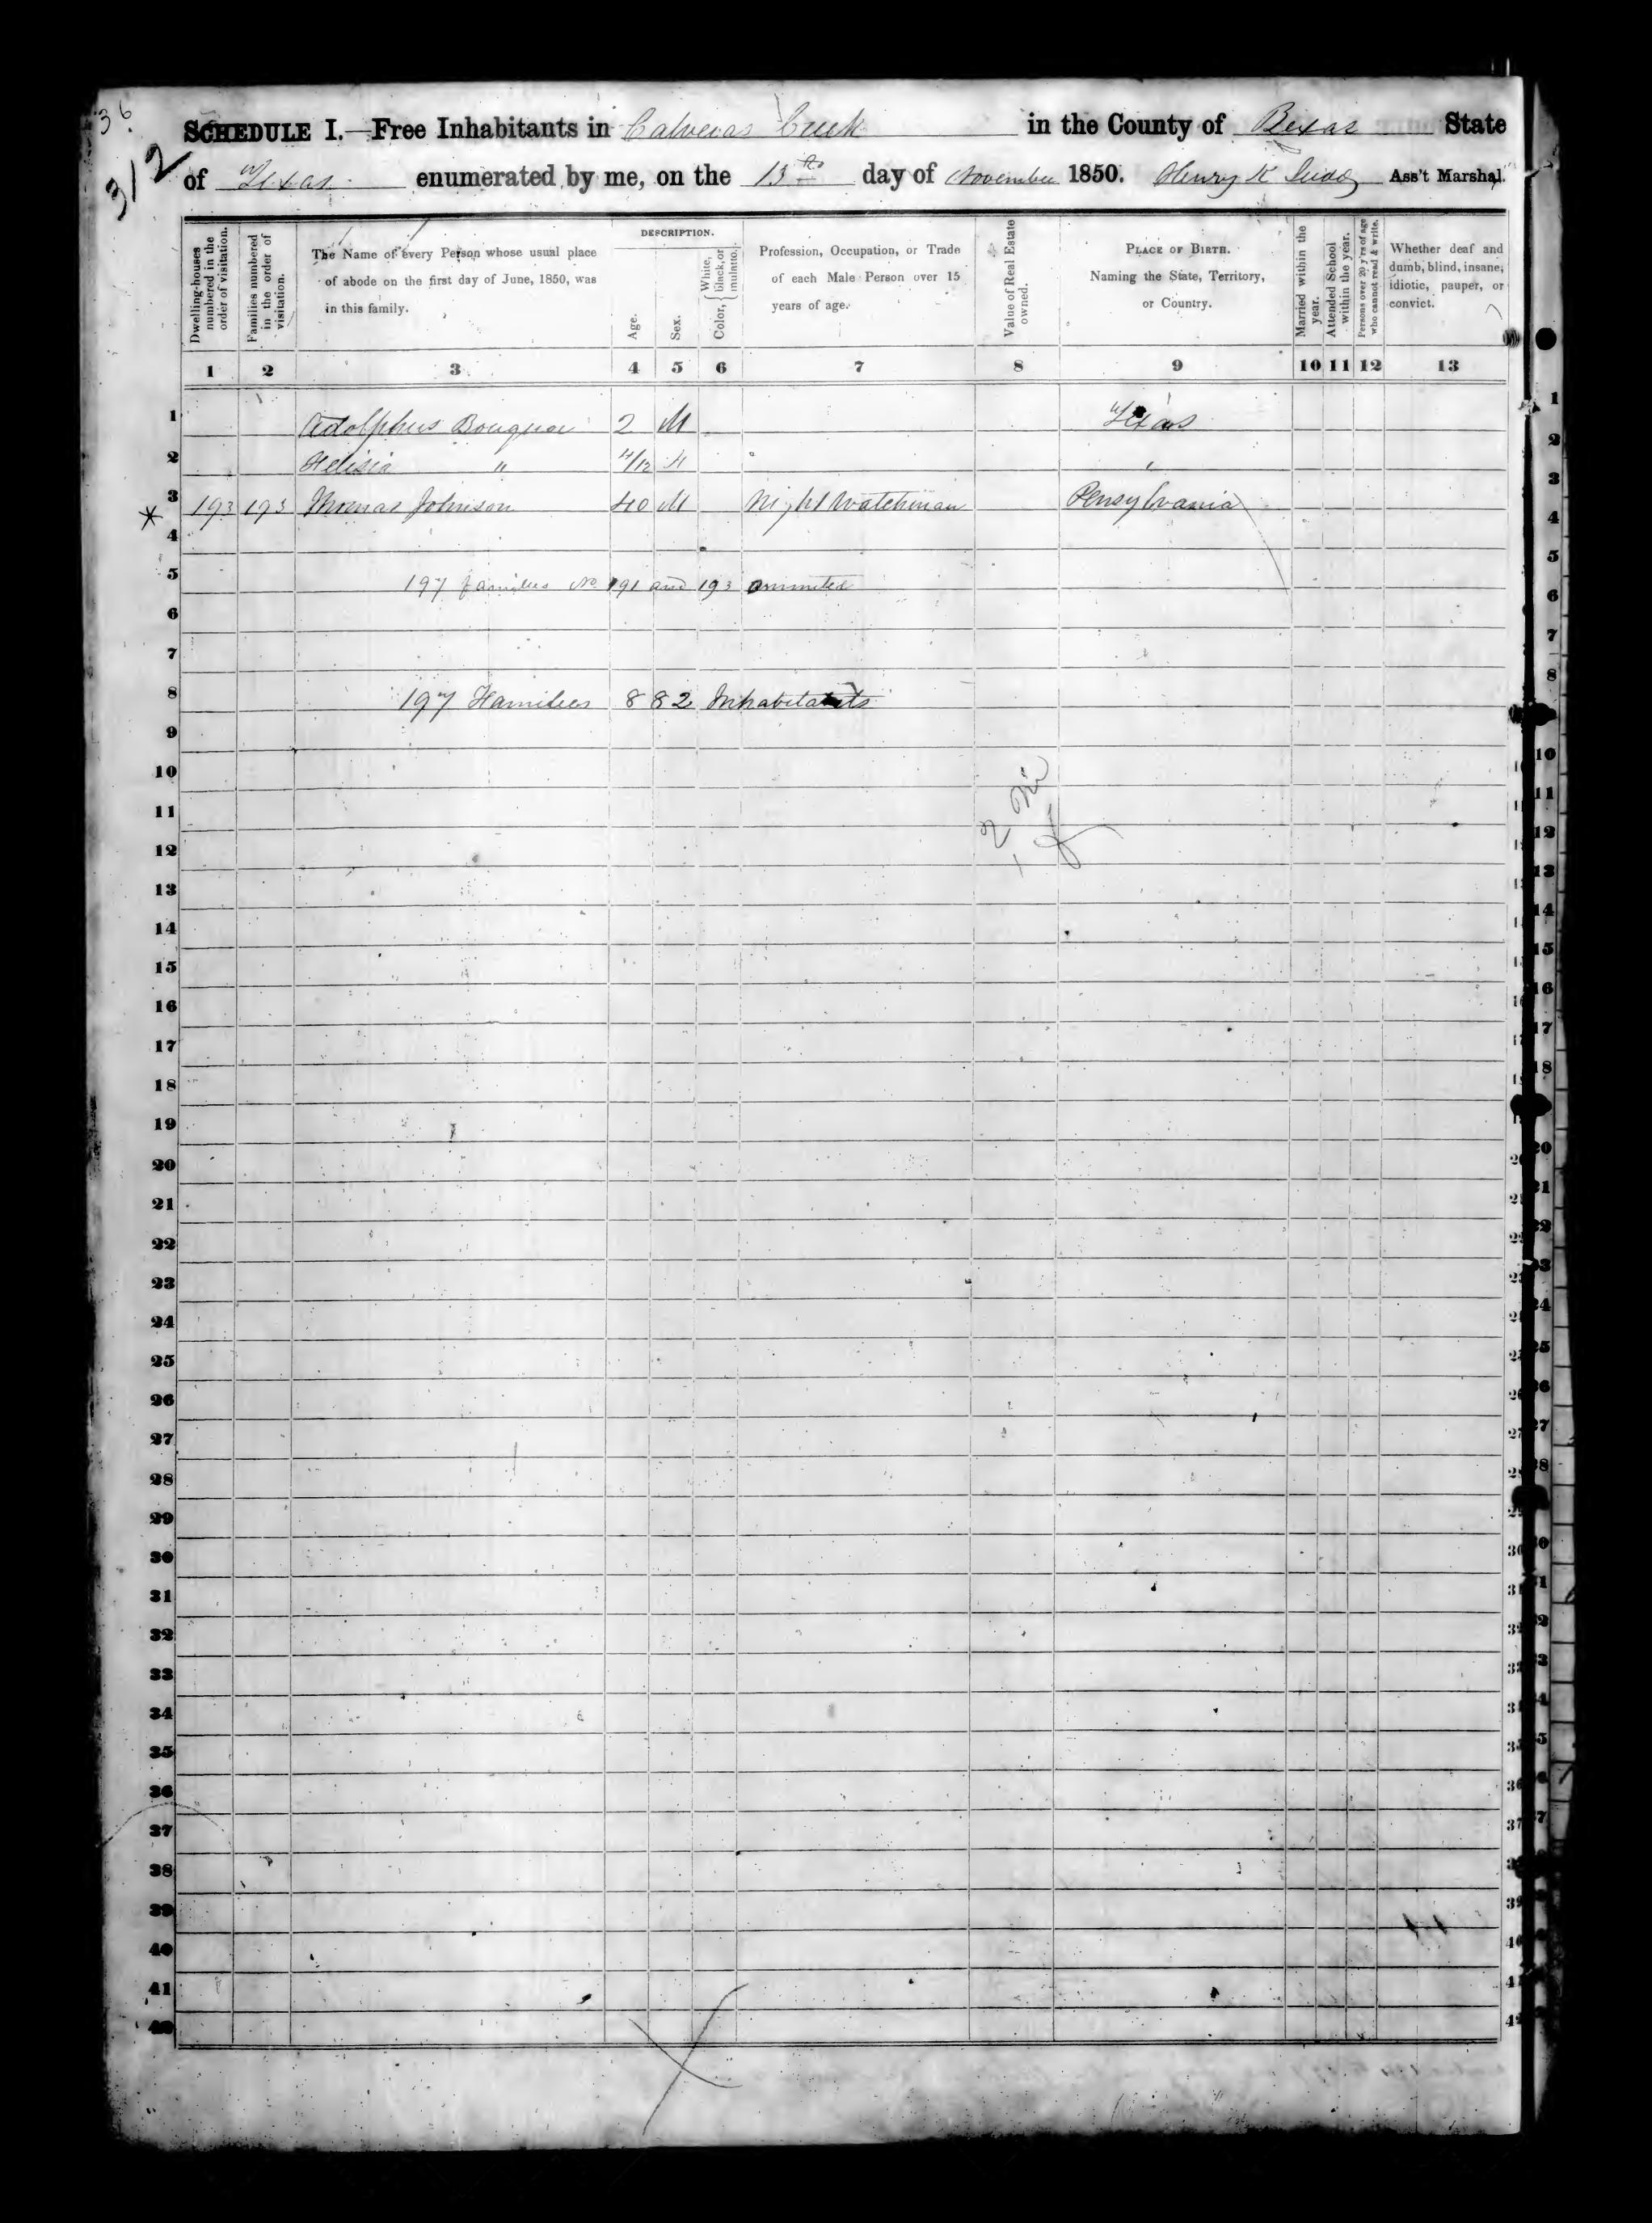 36
312
SCHEDULE I.—Free Inhabitants in Calveras Creek in the County of Bexar State
of Texas enumerated by me, on the 13th day of November 1850. Henry K Ass't Marshal.
Dwelling-houses numbered in the order of visitation.
Families numbered in the order of visitation.
The Name of every Person whose usual place of abode on the first day of June, 1850, was in this family.
DESCRIPTION.
Age.
Sex.
Color, { White, black, or mulatto.
Profession, Occupation, or Trade of each Male Person over 15 years of age.
Value of Real Estate owned.
PLACE OF BIRTH.
Naming the State, Territory, or Country.
Married within the year.
Attended School within the year.
Persons over 20 y'rs of age who cannot read & write.
Whether deaf and dumb, blind, insane, idiotic, pauper, or convict.
1 2 3 4 5 6 7 8 9 10 11 12 13
1 Adolphus 2 M Texas 1
2 " 4/12 " 2
3 193 193 Thomas Johnson 40 M Night Watchman Pensylvania 3
4 4
5 197 families No 191 and 193 5
6 6
7 7
8 197 Families 882 Inhabitants 8
9
10 10
11 11
12 12
13 13
14 14
15 15
16 16
17 17
18 18
19
20 20
21 21
22 22
23 23
24 24
25 25
26 26
27 27
28 28
29 29
30 30
31 31
32 32
33 33
34 34
35 35
36 36
37 37
38
39 39
40 40
41 41
42 42